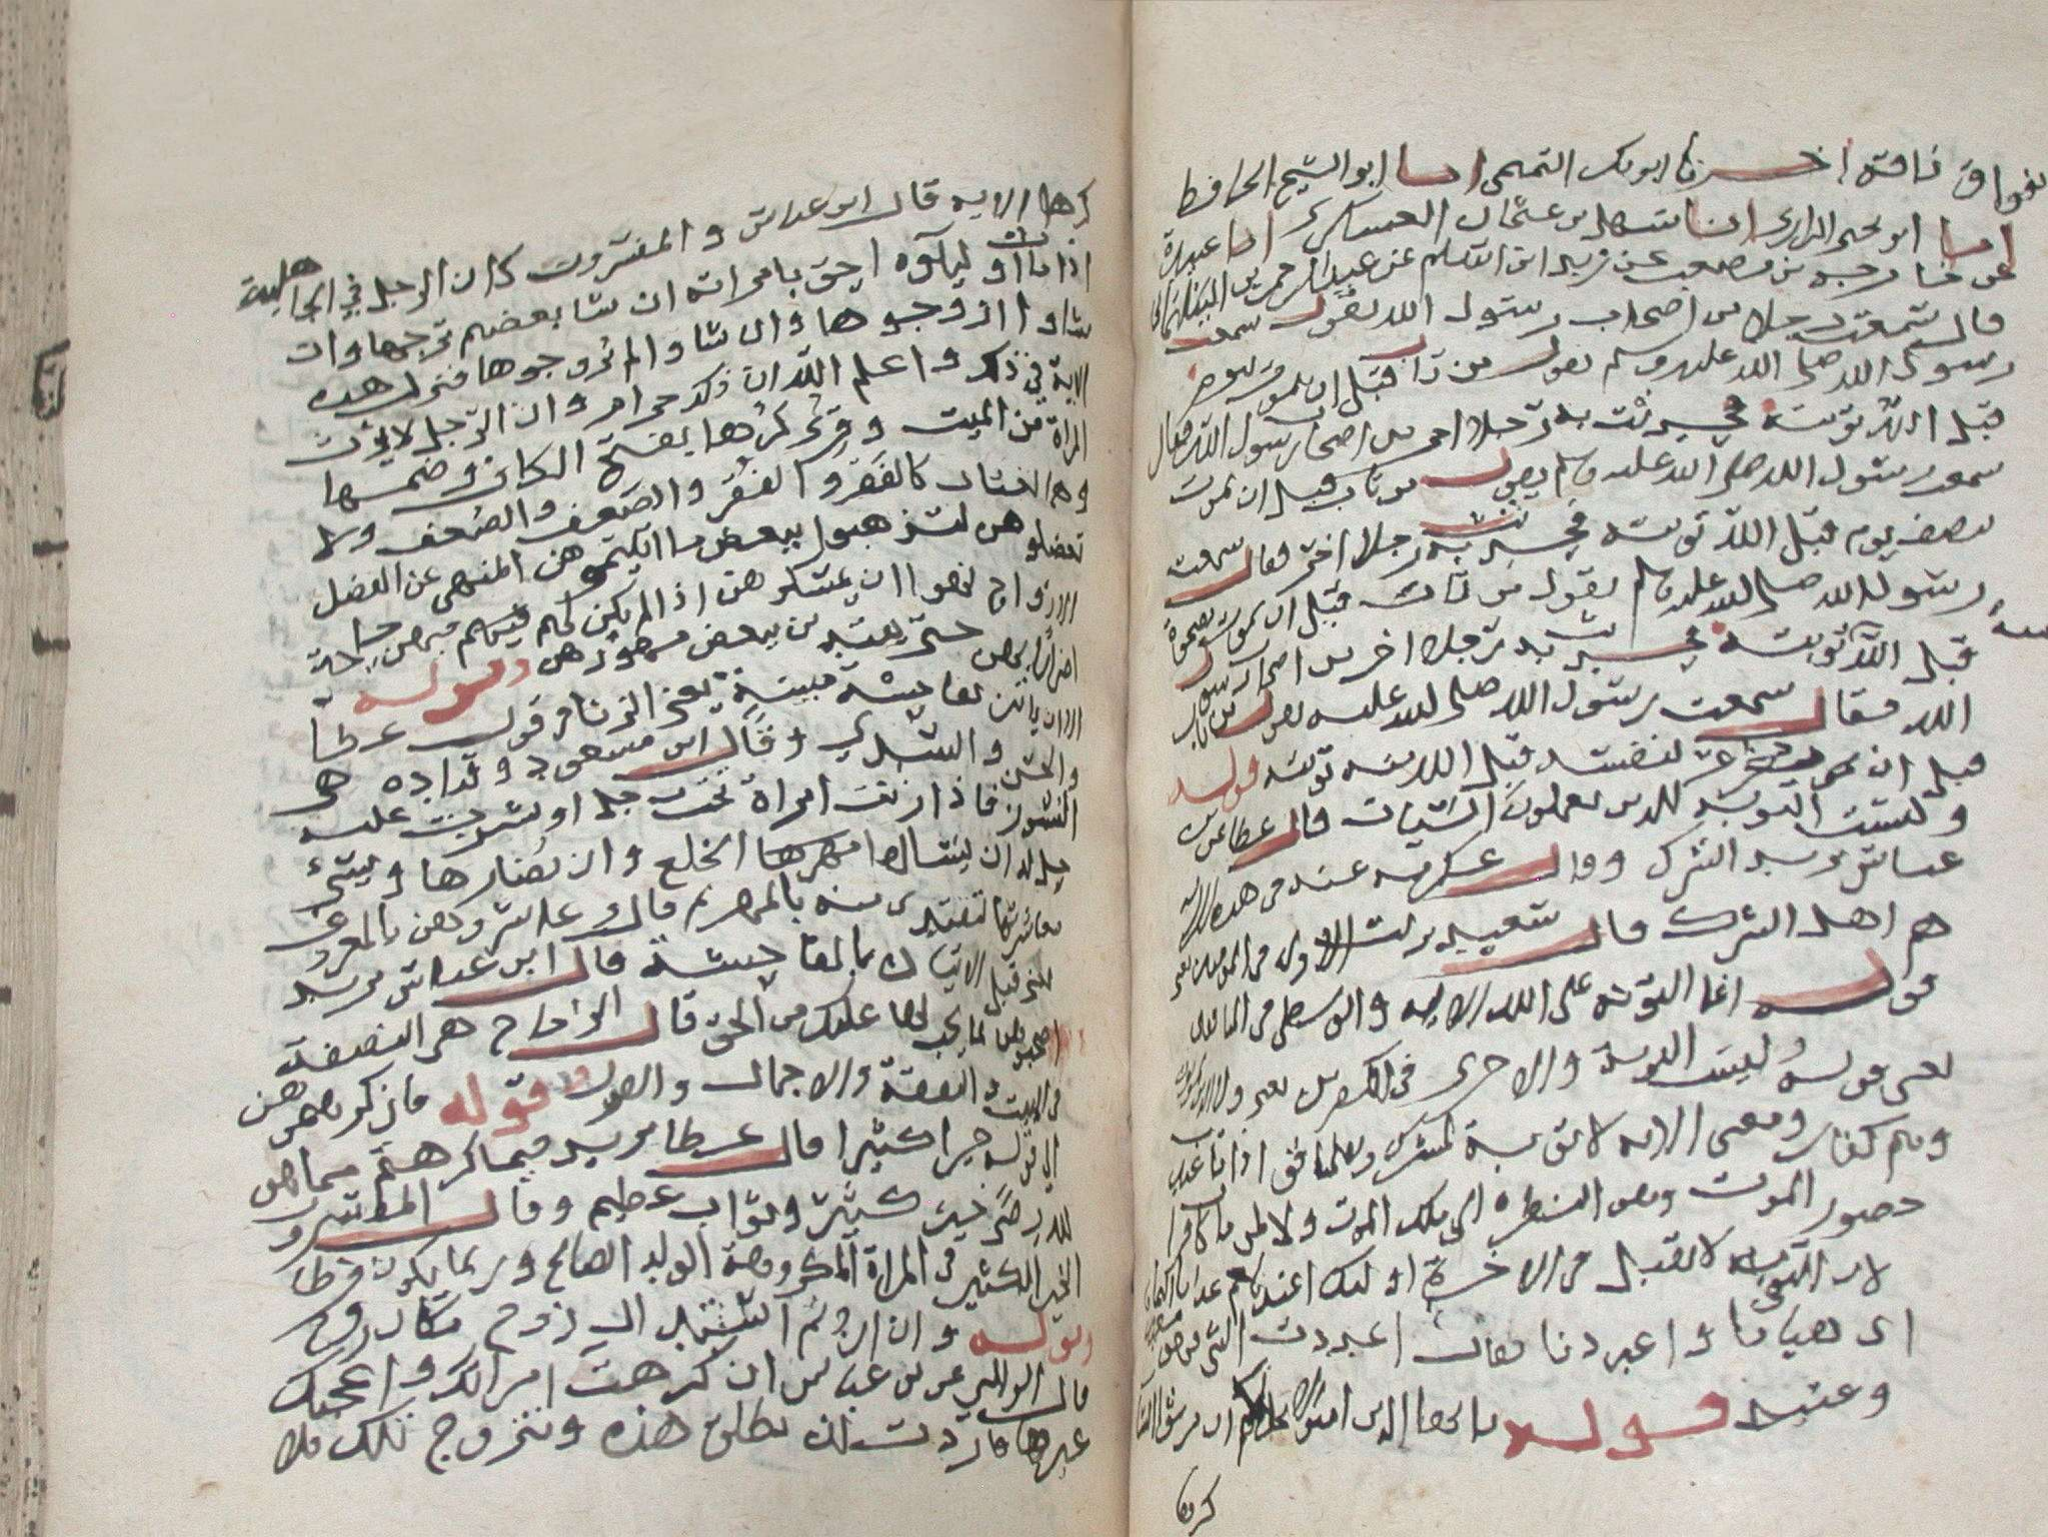 بفواق ناقة اخبرنا ابو بكر التميمى انا ابو الشيخ الحافظ
انا ابو يحيى الرازى انا سهل بن عثمان العسكرى انا عبيدة
عن خارجه بن مصعب عن زيد ابن اسلم عن عبدالرحمن بن البيلمانى
قال سمعت رجلا من اصحاب رسول الله يقول سمعت
رسول الله صلى الله عليه وسلم يقول من تاب قبل ان يموت بيوم
قبل الله توبته فحدثت به رجلا اخر من اصحاب رسول الله فقال
سمعت رسول الله صلى الله عليه وسلم يقول من تاب قبل ان يموت
بنصف يوم قبل الله توبته فحدثت به رجلا اخر فقال سمعت
رسول الله صلى الله عليه وسلم يقول من تاب قبل ان يموت بضحوة
قبل الله توبته فحدثت به رجلا اخر من اصحاب رسول
الله فقال سمعت رسول الله صلى الله عليه يقول من تاب
قبل ان يغرغر بنفسه قبل الله منه توبته قوله
وليست التوبه للذين يعملون السيات قال عطا عن ابن
عباس يريد الشرك وقال عكرمه عنه فى هذه الايه
هم اهل الشرك قال سعيد نزلت الاولى فى المومنين يعنى
قوله انما التوبة على الله الايه والوسطى فى المنافقين
يعنى قوله وليست التوبة والاخرى فى الكافرين يعنى ولا الذين يموتون
وهم كفار ومعنى الايه لا توبة لمشرك ولمنافق اذا تاب عند
حضور الموت وهو النظر الى ملك الموت ولا لمن مات كافرا
لان التوبه لا تقبل فى الاخرة اوليك اعتدنا لهم عذابا اليما
اى هيانا واعددنا يقال اعددت الشى فهو
وعتيد قوله يا ايها الذين امنوا لا يحل لكم ان ترثوا النسا
كرها
كرها الايه قال ابن عباس والمفسرون كان الرجل في الجاهلية
اذا مات اولياوه احق بامراته ان شا بعضهم تزوجها وان
شاوا زوجوها وان شاوا لم يزوجوها فنزلت هذه
الاية في ذلك واعلم الله ان ذلك حرام وان الرجل لا يرث
المراة من الميت وقرئ كرها بفتح الكاف وضمها
وهما لغتان كالفَقر والفُقر والضَعف والضُعف ولا
تعضلوهن لتذهبوا ببعض ما اتيتموهن المنهى عن العضل
الازواج نهوا ان يمسكوهن اذا لم يكن لهم فيهن حاجة
اضرارا بهن حتى يفتدين ببعض مهورهن وقوله
الا ان ياتين بفاحشة مبينة يعنى الزنا فى قول عطا
والحسن والسدي وقال ابن مسعود وقتاده هى
النشوز فاذا زنت امراة تحت رجل او نشزت عليه
حل له ان يسالها الخلع وان يضارها ويسئ
معاشرتها لتفتدى منه بالمهر قال وعاشروهن بالمعروف
قبل الاتيان بالفاحشة قال ابن عباس يريد
اصحبوهن بما يجب لها عليك من الحق قال الزجاج هى النصفة
فى المبيت والنفقة والاجمال والقول وقوله فان كرهتموهن
الى قوله خيرا كثيرا قال عطا يريد فيما كرهتم مما هو
لله رضى خير كثير وثواب عظيم وقال المفسرون
الخير الكثير فى المراة المكروهة الولد الصالح وربما يكون فرطا
وقوله وان اردتم استبدال زوج مكان زوج
قال الوالبي عن ابن عباس ان كرهت امراتك واعجبك
غيرها فاردت ان تطلق هذه وتتزوج تلك فلا